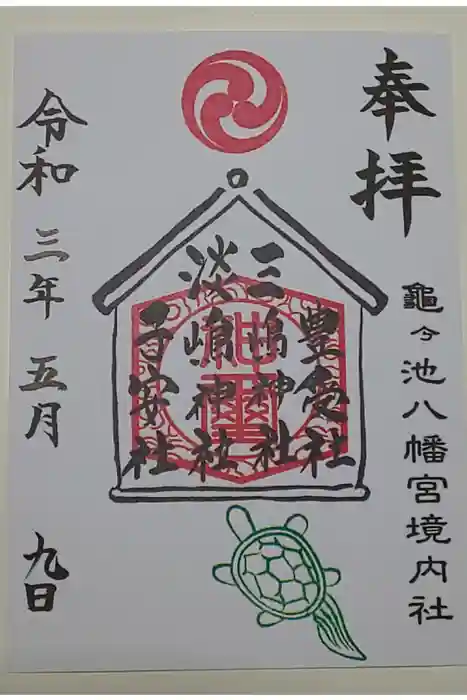 奉拝
龜ケ池八幡宮境内社
豊受社
三嶋神社
淡嶋神社
子安社
令和三年五月九日